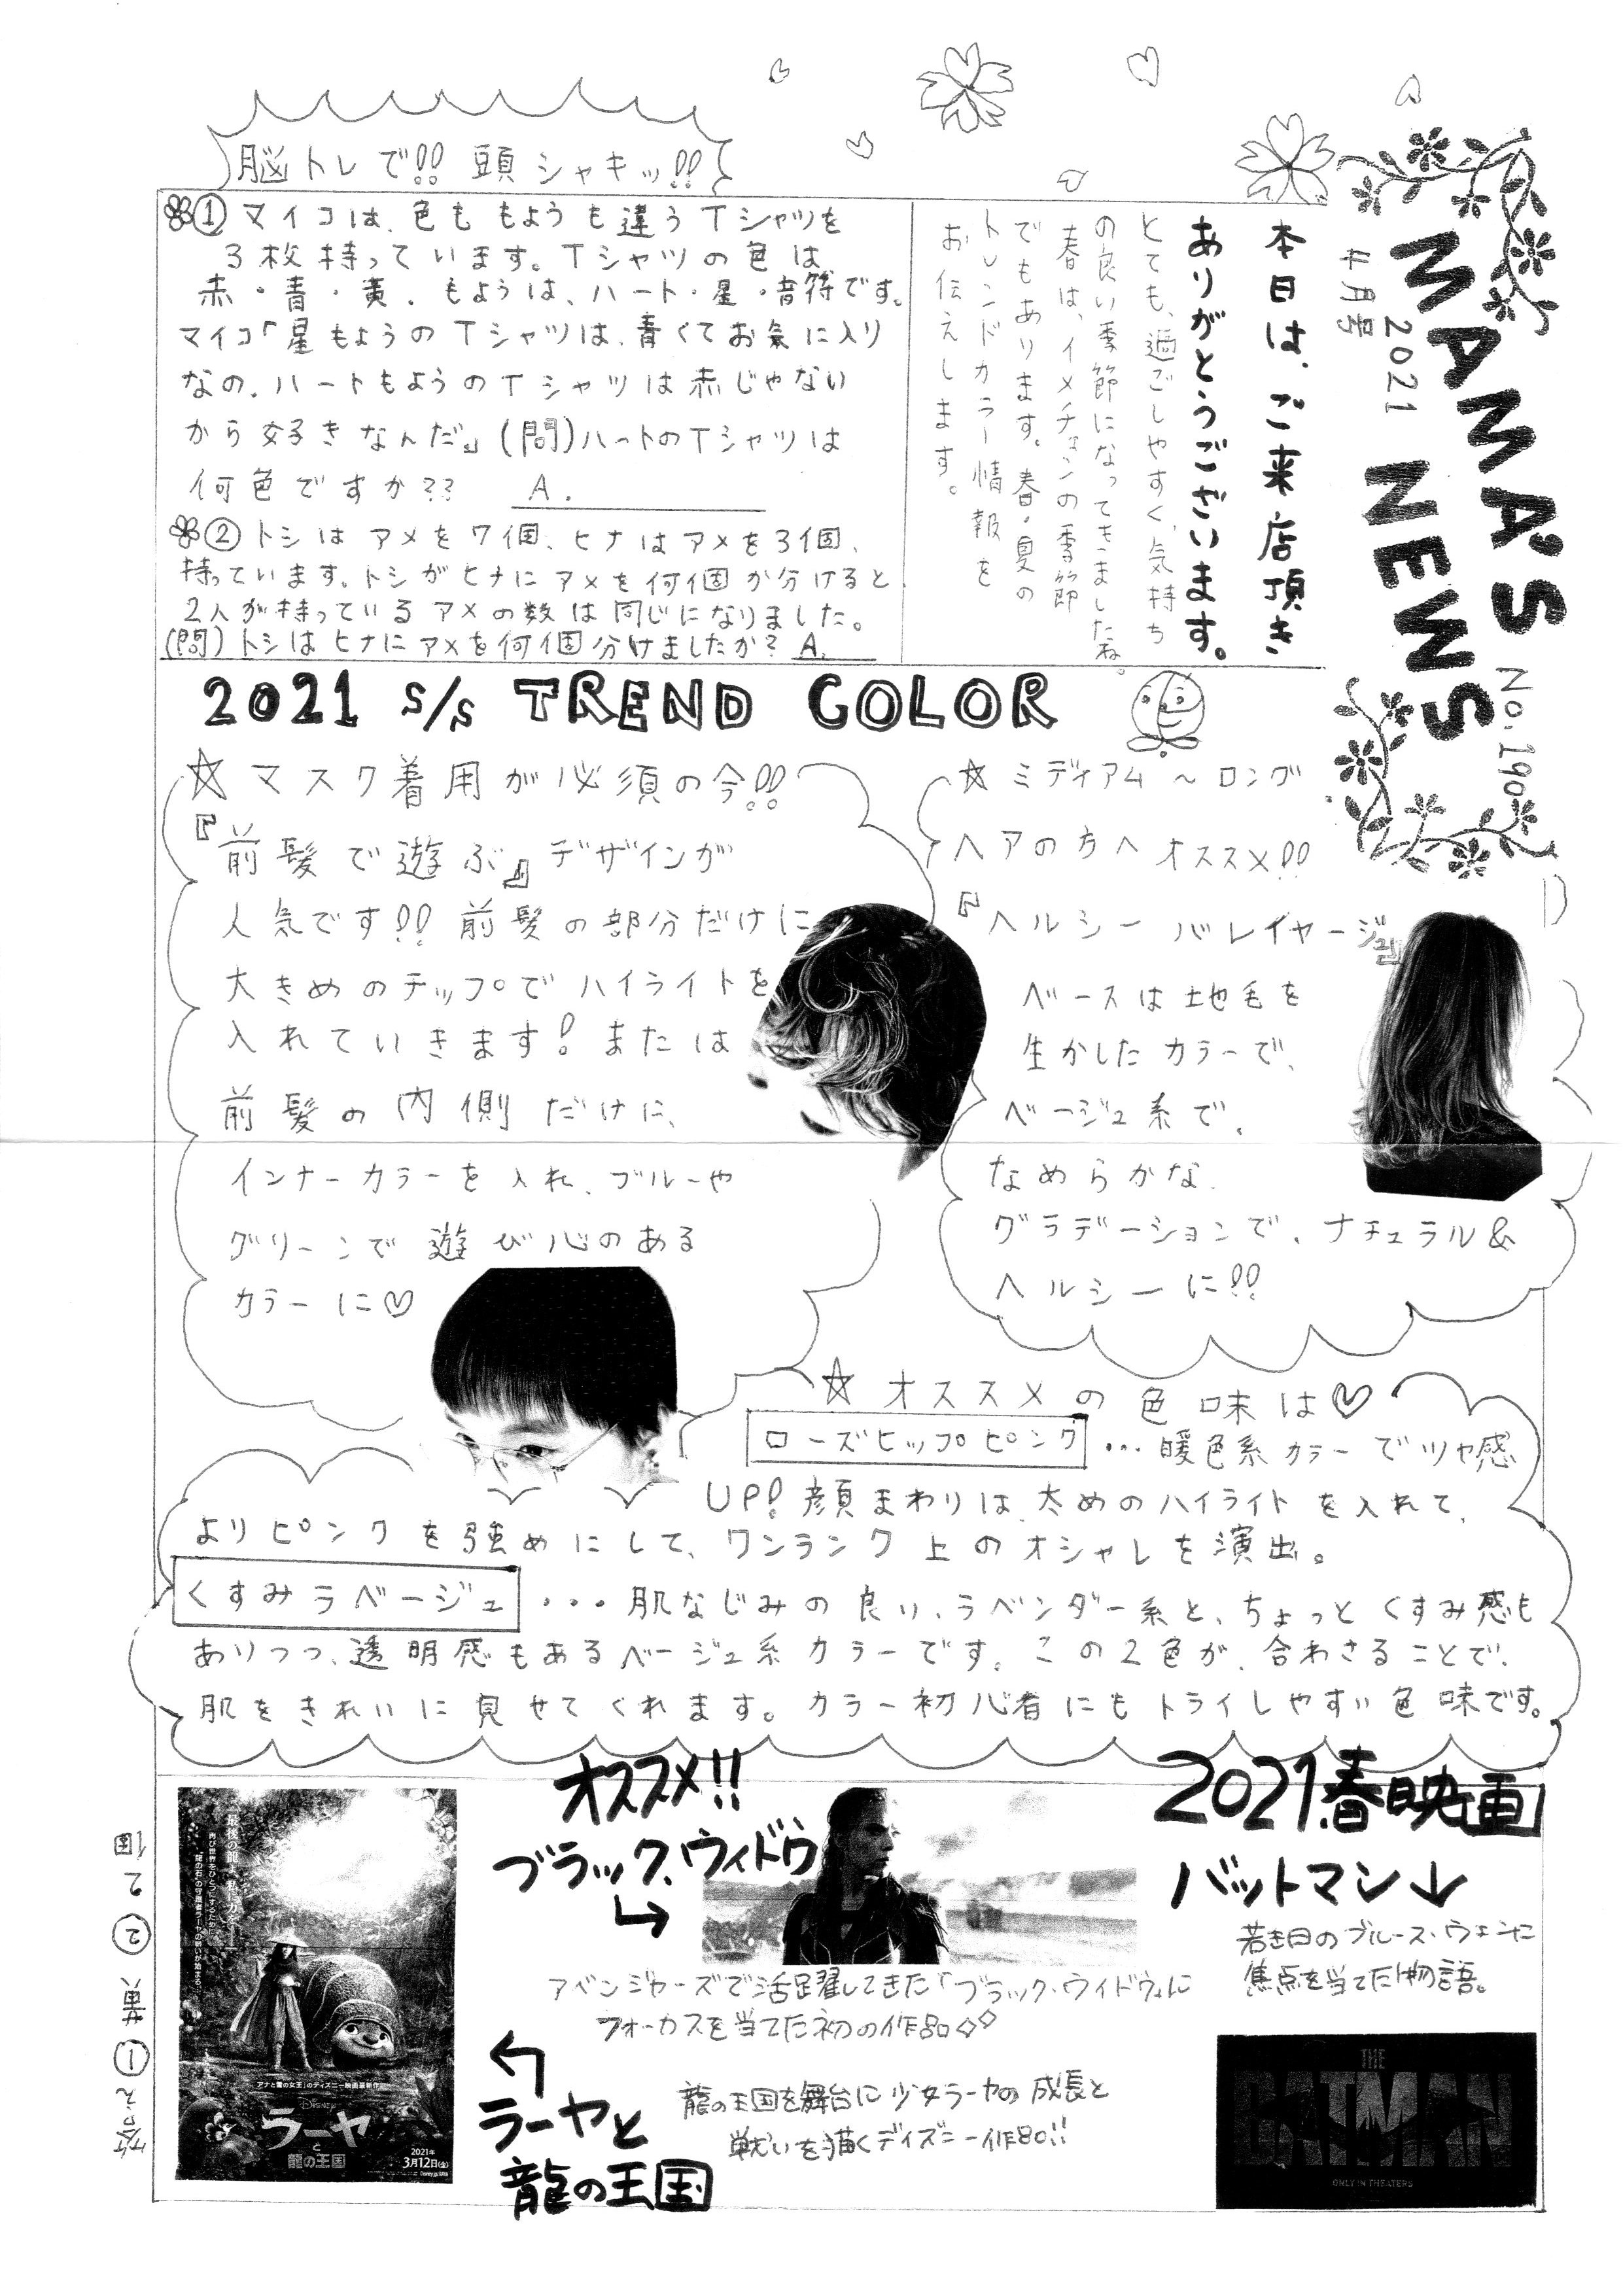 MAMA'S
NEWS
No.190
2021
4月号
本日は、ご来店頂き
ありがとうございます。
とても、過ごしやすく、気持ち
の良い季節になってきましたね。
春は、イメチェンの季節
でもあります。春・夏の
トレンドカラー情報を
お伝えします。
脳トレで!! 頭シャキッ!!
① マイコは、色ももようも違うTシャツを
3枚持っています。Tシャツの色は
赤・青・黄。もようは、ハート・星・音符です。
マイコ「星もようのTシャツは、青くてお気に入り
なの。ハートもようのTシャツは赤じゃない
から好きなんだ。」(問)ハートのTシャツは
何色ですか?? A.
② トシはアメを7個、ヒナはアメを3個、
持っています。トシがヒナにアメを何個か分けると、
2人が持っているアメの数は同じになりました。
(問)トシはヒナにアメを何個分けましたか? A.
2021 S/S TREND COLOR
☆マスク着用が必須の今!!
『前髪で遊ぶ』デザインが
人気です!! 前髪の部分だけに
大きめのチップでハイライトを
入れていきます! または
前髪の内側だけに、
インナーカラーを入れ、ブルーや
グリーンで遊び心のある
カラーに♡
☆ミディアム〜ロング
ヘアの方へオススメ!!
『ヘルシーバレイヤージュ』
ベースは地毛を
生かしたカラーで、
ベージュ系で、
なめらかな、
グラデーションで、ナチュラル&
ヘルシーに!!
☆オススメの色味は♡
ローズヒップピンク …暖色系カラーでツヤ感
UP! 顔まわりは、太めのハイライトを入れて、
よりピンクを強めにして、ワンランク上のオシャレを演出。
くすみラベージュ …肌なじみの良い、ラベンダー系と、ちょっとくすみ感も
ありつつ、透明感もあるベージュ系カラーです。この2色が、合わさることで、
肌をきれいに見せてくれます。カラー初心者にもトライしやすい色味です。
2021.春映画
オススメ!!
ブラック・ウィドウ
アベンジャーズで活躍してきた「ブラック・ウィドウ」に
フォーカスを当てた初の作品◇◇
バットマン↓
若き日のブルース・ウェンに
焦点を当てた物語。
THE
BATMAN
ONLY IN THEATERS
←
ラーヤと
龍の王国
龍の王国を舞台に少女ラーヤの成長と
戦いを描くディズニー作品!!
アナと雪の女王」のディズニー映画最新作
DISNEY
ラーヤ
と
龍の王国
2021年
3月12日(金)
答え ① 黄 ② 2個